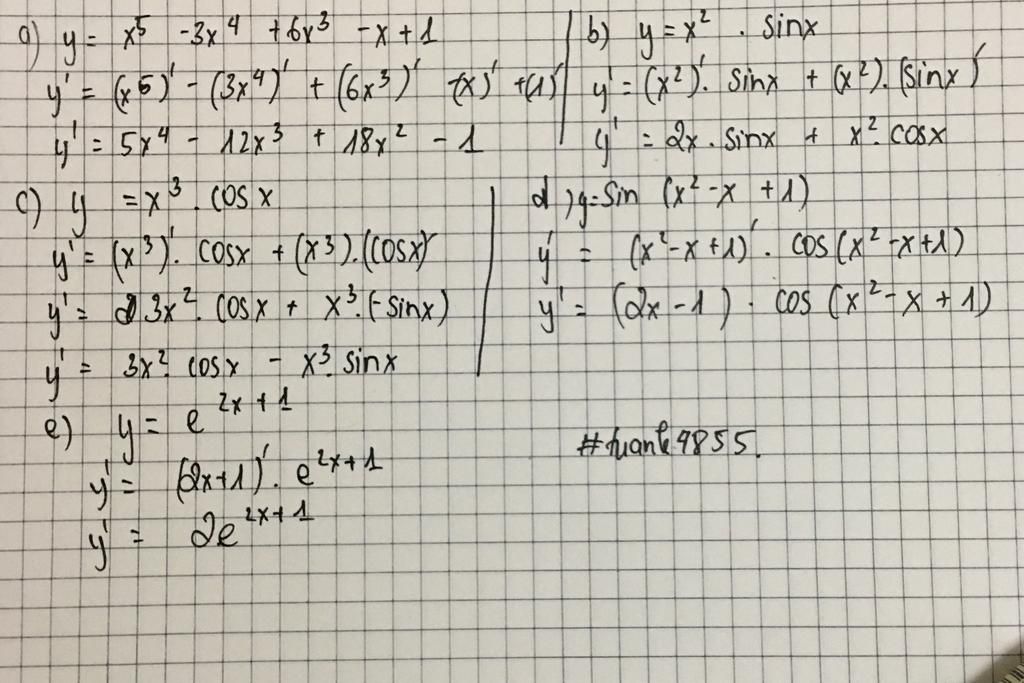 a) y = x⁵ - 3x⁴ + 6x³ - x + 1
y' = (x⁵)' - (3x⁴)' + (6x³)' - (x)' + (1)'
y' = 5x⁴ - 12x³ + 18x² - 1
b) y = x² . sinx
y' = (x²)'. sinx + (x²). (sinx)'
y' = 2x . sinx + x². cosx
c) y = x³ . cosx
y' = (x³)'. cosx + (x³).(cosx)'
y' = 3x². cosx + x³.(-sinx)
y' = 3x². cosx - x³. sinx
d) y = sin (x² - x + 1)
y' = (x² - x + 1)' . cos (x² - x + 1)
y' = (2x - 1) . cos (x² - x + 1)
e) y = e²ˣ⁺¹
y' = (2x+1)'. e²ˣ⁺¹
y' = 2e²ˣ⁺¹